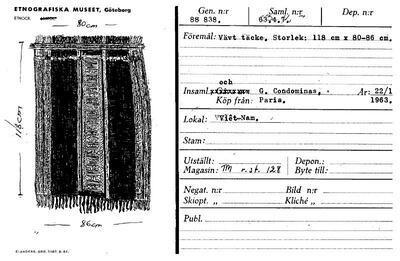 ETNOGRAFISKA MUSEET, Göteborg
80 cm
118 cm
86 cm
ELANDERS, GBG. 1967.
Gen. n:r
88 838.
Saml. n:r
Dep. n:r
Föremål: Vävt täcke, Storlek: 118 cm x 80-86 cm.
och
Insaml. G. Condominas. År: 22/1
Köp från: Paris. 1963.
Lokal: Viêt-Nam.
Stam:
Utställt: Depon.:
Magasin: M r. st. 128 Byte till:
Negat. n:r Bild n:r
Skiopt. „ Kliché „
Publ.